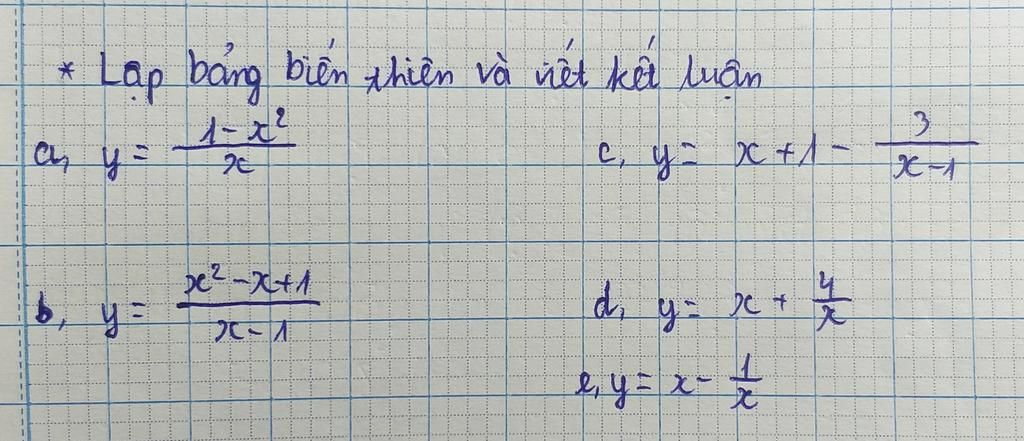 * Lập bảng biến thiên và viết kết luận
a, y = (1-x²)/x
c, y = x+1 - 3/(x-1)
b, y = (x²-x+1)/(x-1)
d, y = x + 4/x
e, y = x - 1/x